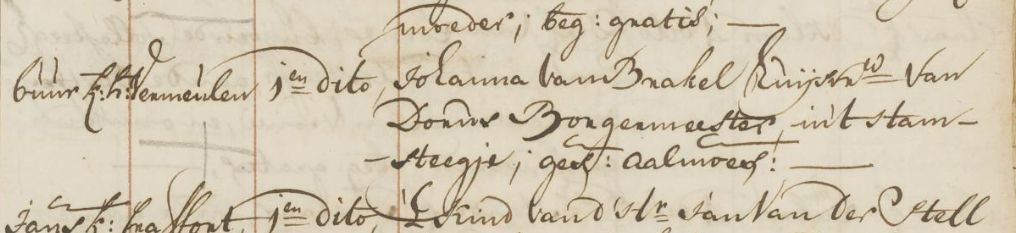 moeder; beg: gratis; —
buur k: h: Vermeulen 1en dito, Johanna van Brakel Huijsvrw van
Dorus Borgermeester, in't stam-
steegje; gea: aalmoes: —
Jans k: 1en dito, 't kind vand' Hr Jan Van der Stell